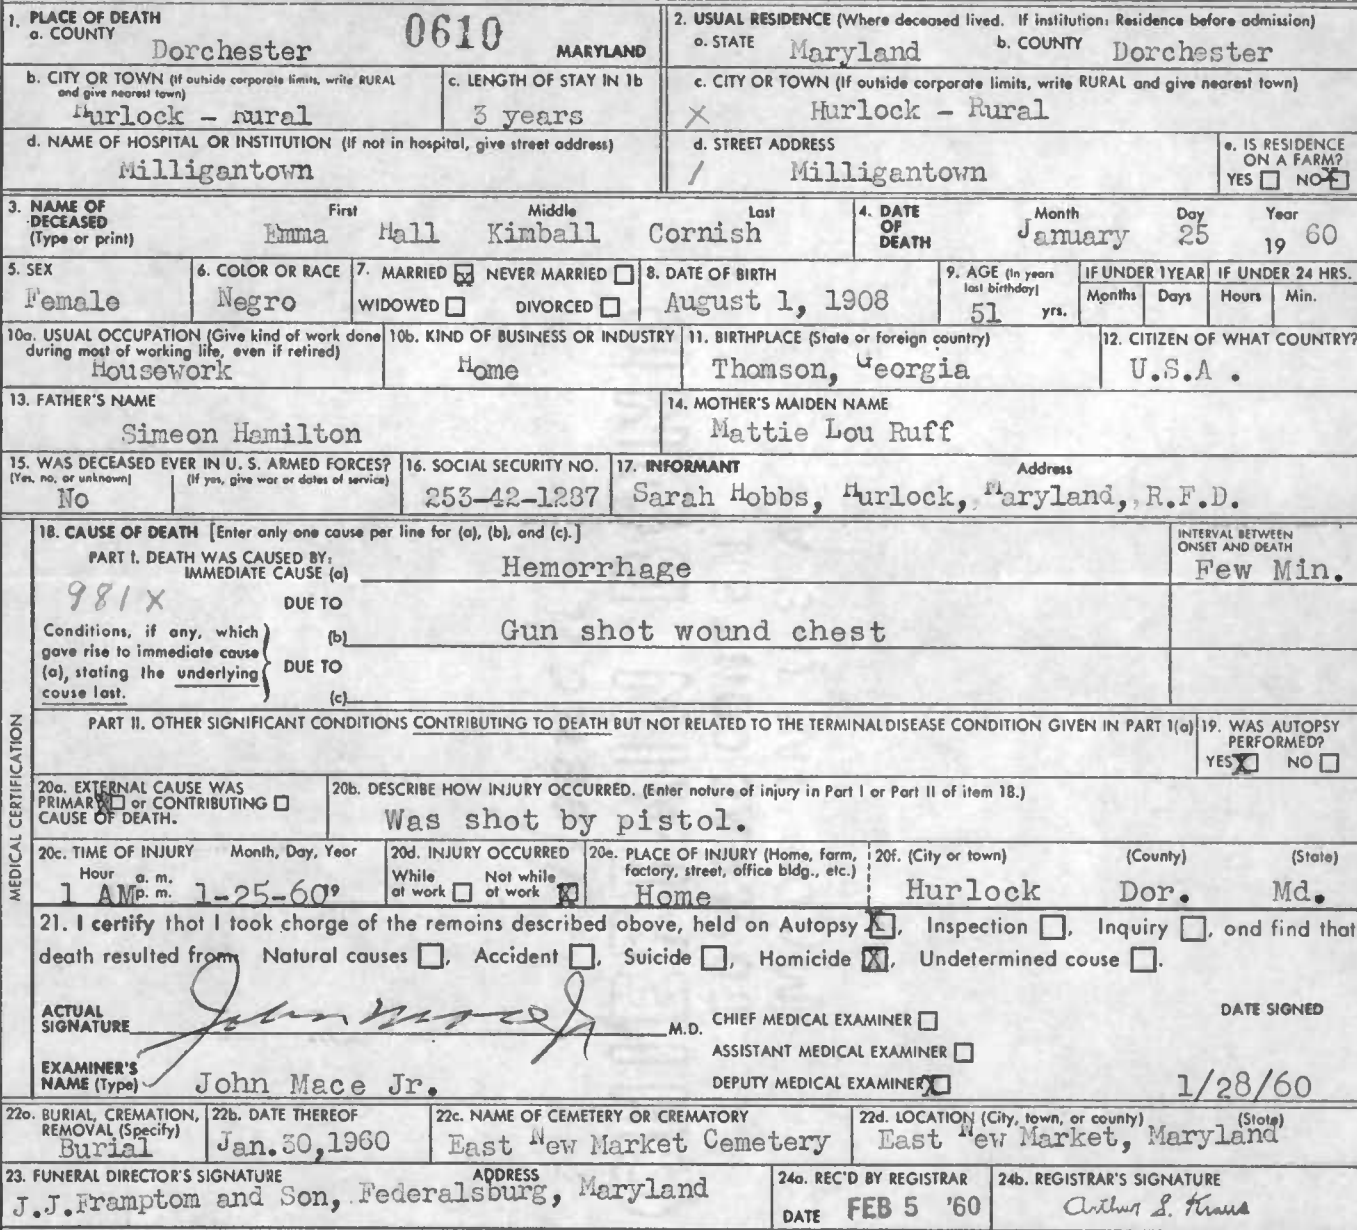 1. PLACE OF DEATH
a. COUNTY
Dorchester
0610
MARYLAND
2. USUAL RESIDENCE (Where deceased lived. If institution: Residence before admission)
a. STATE Maryland b. COUNTY Dorchester
b. CITY OR TOWN (If outside corporate limits, write RURAL and give nearest town)
Hurlock - Rural
c. LENGTH OF STAY IN 1b
3 years
c. CITY OR TOWN (If outside corporate limits, write RURAL and give nearest town)
X Hurlock - Rural
d. NAME OF HOSPITAL OR INSTITUTION (If not in hospital, give street address)
Milligantown
d. STREET ADDRESS
/ Milligantown
e. IS RESIDENCE
ON A FARM?
YES ☐ NO ☒
3. NAME OF
DECEASED
(Type or print)
First Middle Last
Emma Hall Kimball Cornish
4. DATE
OF
DEATH
Month Day Year
January 25 19 60
5. SEX
Female
6. COLOR OR RACE
Negro
7. MARRIED ☒ NEVER MARRIED ☐
WIDOWED ☐ DIVORCED ☐
8. DATE OF BIRTH
August 1, 1908
9. AGE (In years
last birthday)
51 yrs.
IF UNDER 1 YEAR
Months Days
IF UNDER 24 HRS.
Hours Min.
10a. USUAL OCCUPATION (Give kind of work done
during most of working life, even if retired)
Housework
10b. KIND OF BUSINESS OR INDUSTRY
Home
11. BIRTHPLACE (State or foreign country)
Thomson, Georgia
12. CITIZEN OF WHAT COUNTRY?
U.S.A .
13. FATHER'S NAME
Simeon Hamilton
14. MOTHER'S MAIDEN NAME
Mattie Lou Ruff
15. WAS DECEASED EVER IN U. S. ARMED FORCES?
(Yes, no, or unknown) (If yes, give war or dates of service)
No
16. SOCIAL SECURITY NO.
253-42-1287
17. INFORMANT Address
Sarah Hobbs, Hurlock, Maryland, R.F.D.
MEDICAL CERTIFICATION
18. CAUSE OF DEATH [Enter only one cause per line for (a), (b), and (c).]
INTERVAL BETWEEN
ONSET AND DEATH
PART I. DEATH WAS CAUSED BY:
IMMEDIATE CAUSE (a) Hemorrhage
Few Min.
981X
DUE TO
Conditions, if any, which
gave rise to immediate cause
(a), stating the underlying
cause last.
(b) Gun shot wound chest
DUE TO
(c)
PART II. OTHER SIGNIFICANT CONDITIONS CONTRIBUTING TO DEATH BUT NOT RELATED TO THE TERMINAL DISEASE CONDITION GIVEN IN PART 1(a)
19. WAS AUTOPSY
PERFORMED?
YES ☒ NO ☐
20a. EXTERNAL CAUSE WAS
PRIMARY ☒ or CONTRIBUTING ☐
CAUSE OF DEATH.
20b. DESCRIBE HOW INJURY OCCURRED. (Enter nature of injury in Part I or Part II of item 18.)
Was shot by pistol.
20c. TIME OF INJURY Month, Day, Year
Hour a. m.
1 AM p. m. 1-25-60 19
20d. INJURY OCCURRED
While at work ☐ Not while at work ☒
20e. PLACE OF INJURY (Home, farm,
factory, street, office bldg., etc.)
Home
20f. (City or town) (County) (State)
Hurlock Dor. Md.
21. I certify that I took charge of the remains described above, held on Autopsy ☒, Inspection ☐, Inquiry ☐, and find that
death resulted from Natural causes ☐, Accident ☐, Suicide ☐, Homicide ☒, Undetermined cause ☐.
ACTUAL
SIGNATURE John Mace Jr M.D.
CHIEF MEDICAL EXAMINER ☐
DATE SIGNED
ASSISTANT MEDICAL EXAMINER ☐
EXAMINER'S
NAME (Type) John Mace Jr.
DEPUTY MEDICAL EXAMINER ☒
1/28/60
22a. BURIAL, CREMATION,
REMOVAL (Specify)
Burial
22b. DATE THEREOF
Jan.30,1960
22c. NAME OF CEMETERY OR CREMATORY
East New Market Cemetery
22d. LOCATION (City, town, or county) (State)
East New Market, Maryland
23. FUNERAL DIRECTOR'S SIGNATURE ADDRESS
J.J.Framptom and Son, Federalsburg, Maryland
24a. REC'D BY REGISTRAR
DATE FEB 5 '60
24b. REGISTRAR'S SIGNATURE
Arthur S. Kraus